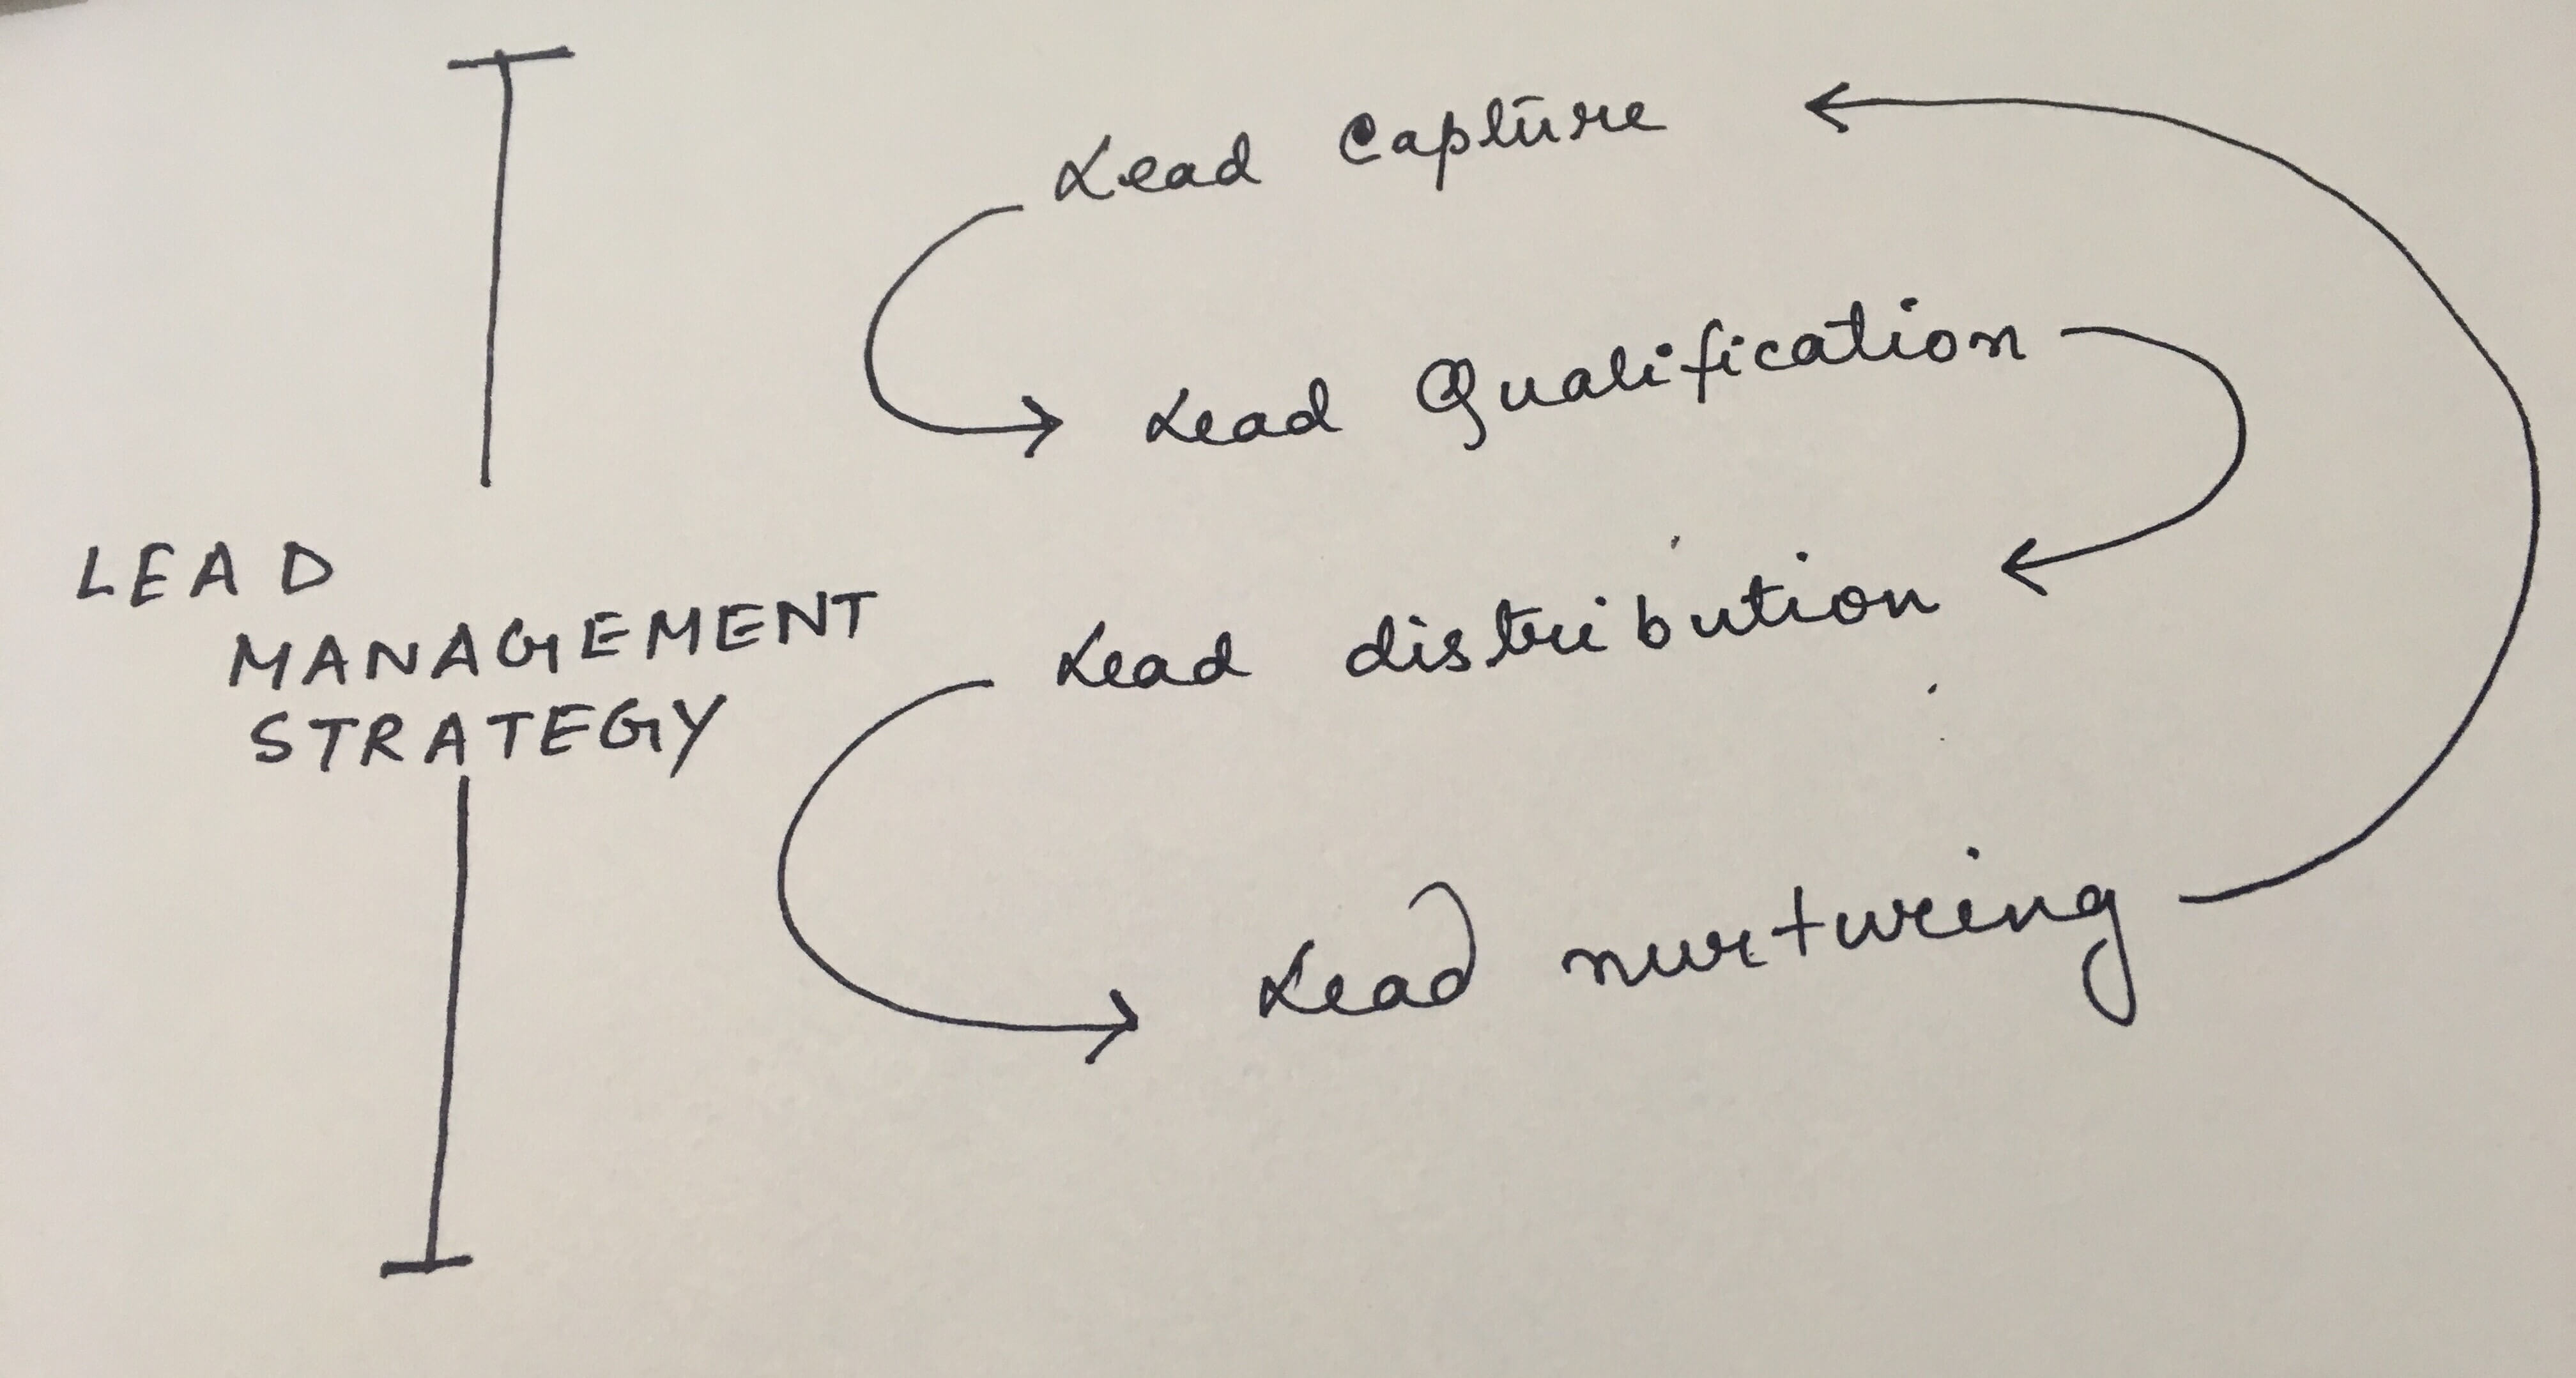 Lead Capture
Lead Qualification
LEAD
MANAGEMENT
STRATEGY
Lead distribution
Lead nurturing